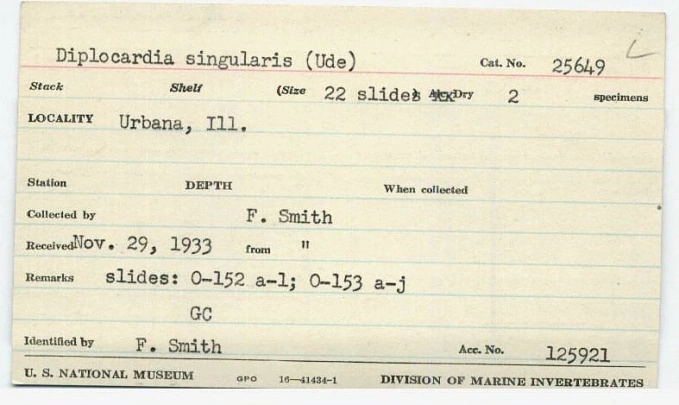 Diplocardia singularis (Ude) Cat. No. 25649
Stack Shelf (Size 22 slides ) Dry 2 specimens
LOCALITY Urbana, Ill.
Station DEPTH When collected
Collected by F. Smith
Received Nov. 29, 1933 from "
Remarks slides: O-152 a-l; O-153 a-j
GC
Identified by F. Smith Acc. No. 125921
U. S. NATIONAL MUSEUM GPO 16—41434-1 DIVISION OF MARINE INVERTEBRATES